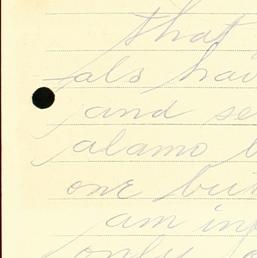 that
als hav
and se
alamo b
one bui
am inf
only